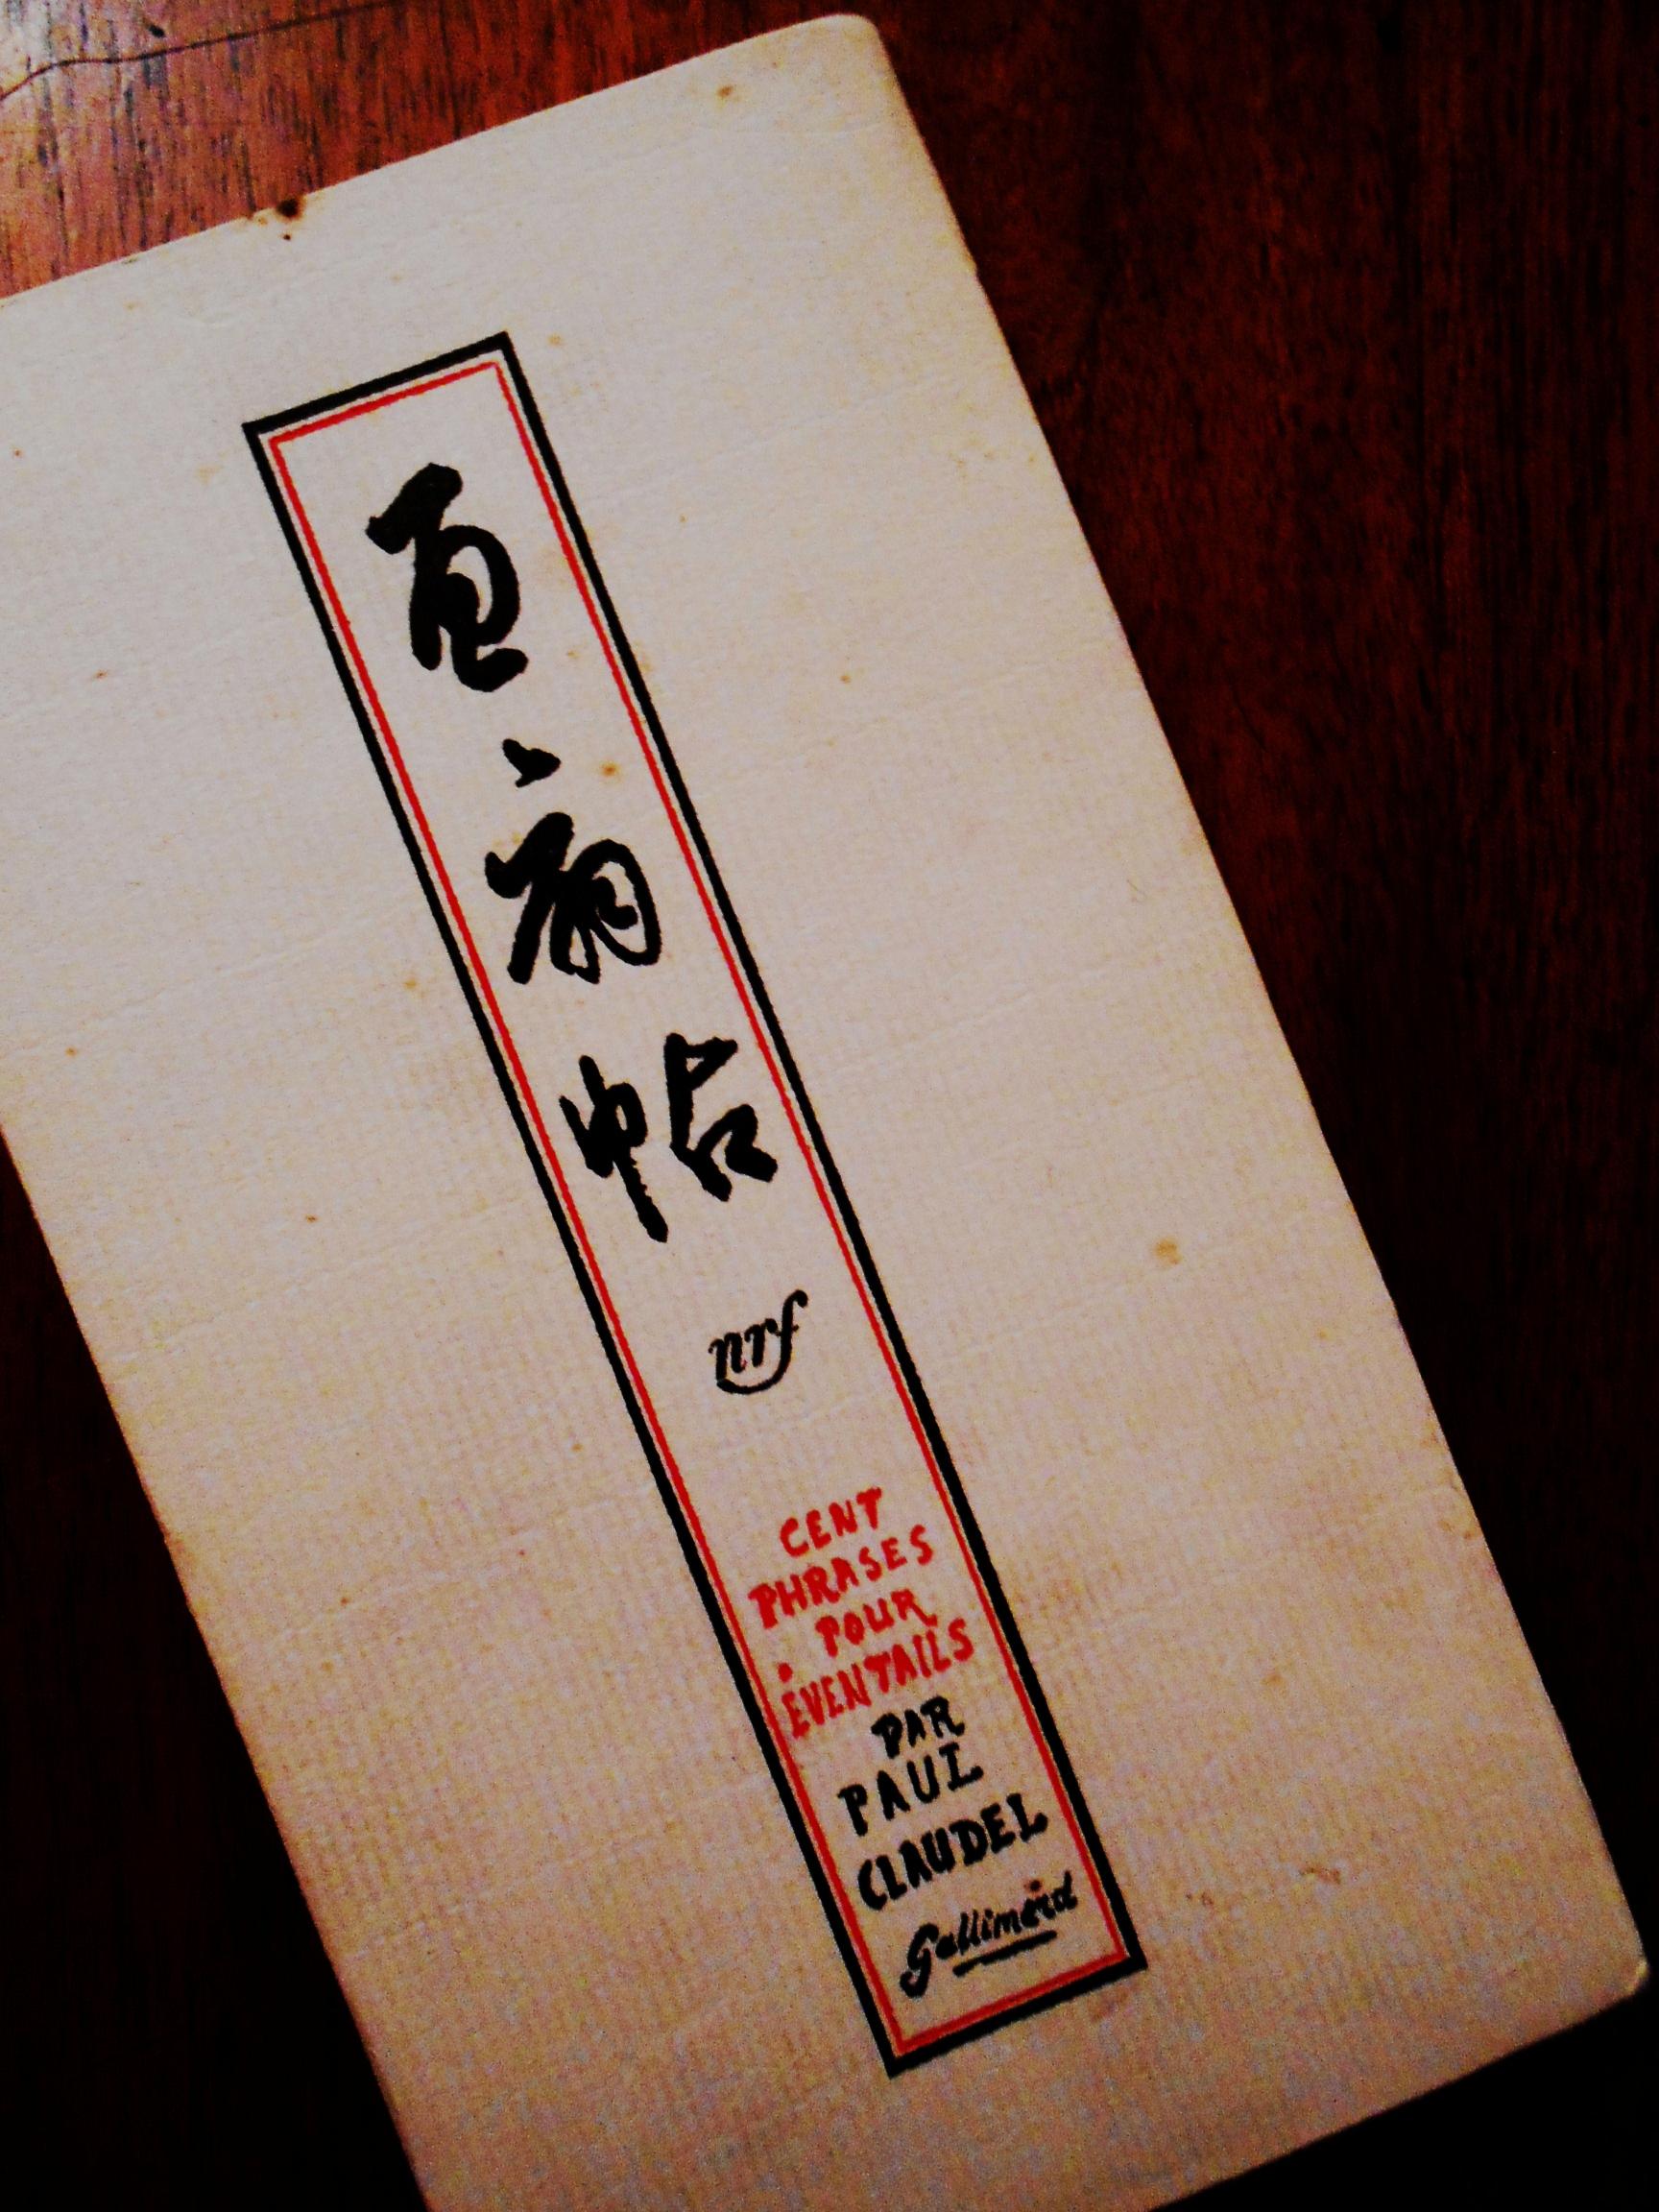 百扇帖
nrf
CENT
PHRASES
POUR
ÉVENTAILS
PAR
PAUL
CLAUDEL
Gallimard